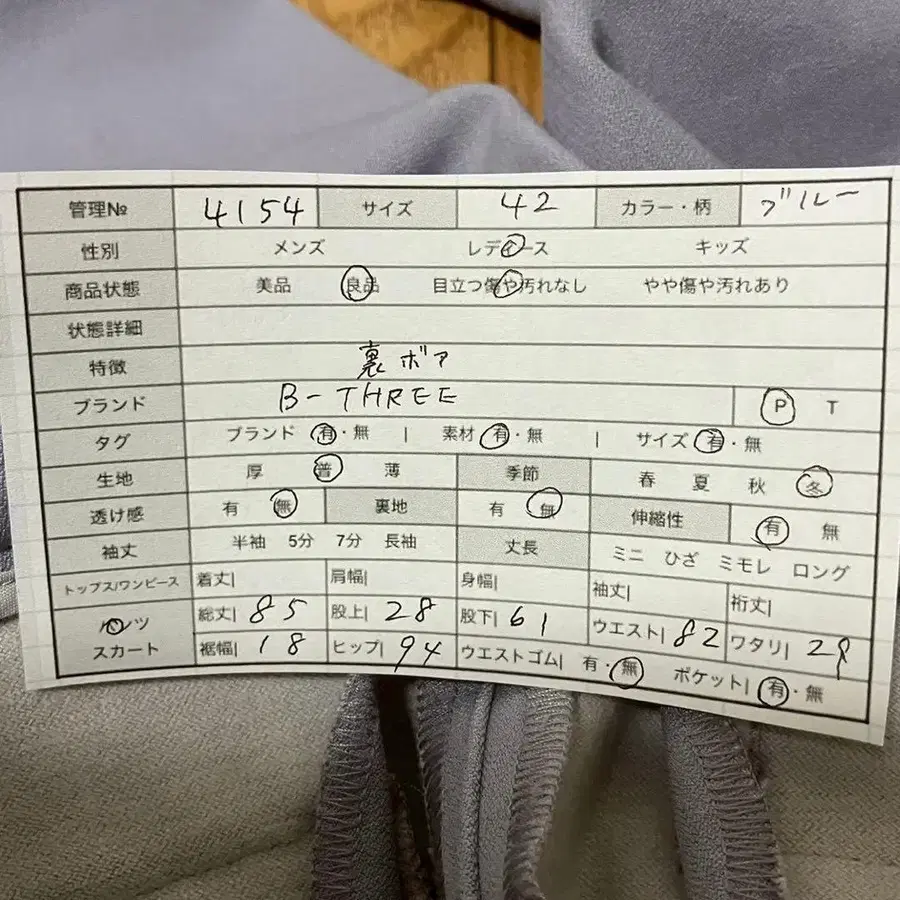 管理№ 4154 サイズ 42 カラー・柄 ブルー
性別 メンズ レディース キッズ
商品状態 美品 良品 目立つ傷や汚れなし やや傷や汚れあり
状態詳細
特徴 裏ボア
ブランド B-THREE P T
タグ ブランド 有・無 | 素材 有・無 | サイズ 有・無
生地 厚 普 薄 季節 春 夏 秋 冬
透け感 有 無 裏地 有 無 伸縮性 有 無
袖丈 半袖 5分 7分 長袖 丈長 ミニ ひざ ミモレ ロング
トップス/ワンピース 着丈| 肩幅| 身幅| 袖丈| 裄丈|
パンツ 総丈| 85 股上| 28 股下| 61 ウエスト| 82 ワタリ| 29
スカート 裾幅| 18 ヒップ| 94 ウエストゴム| 有・無 ポケット| 有・無